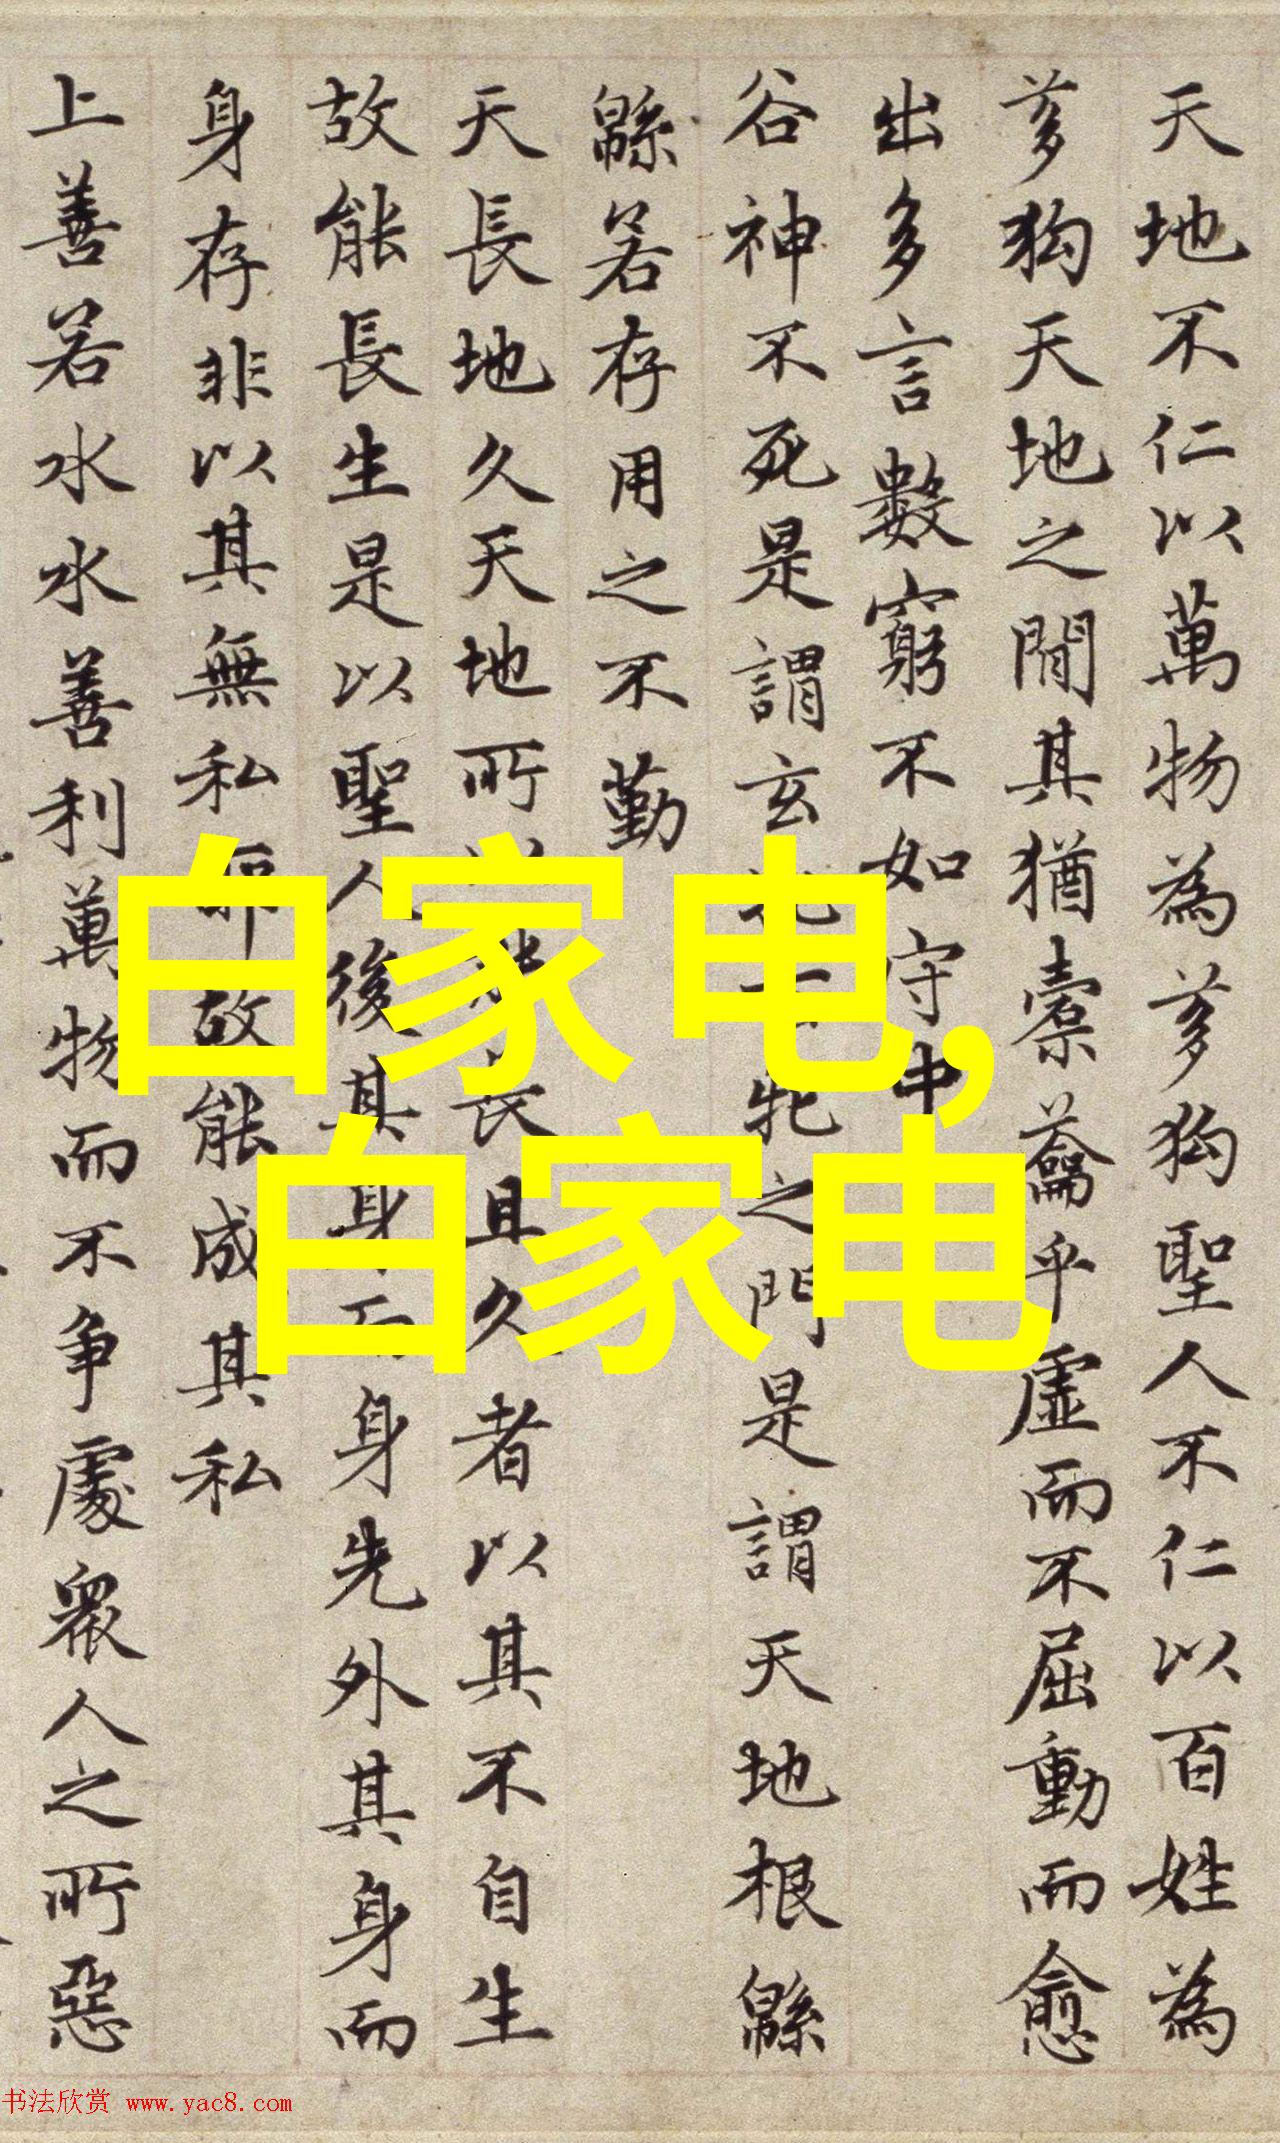 天地不仁以萬物為芻狗聖人不仁以百姓為
芻狗天地之間其猶橐籥乎虛而不屈動而愈
出多言數窮不如守中
谷神不死是謂玄牝玄牝之門是謂天地根緜
緜若存用之不勤
天長地久天地所以能長且久者以其不自生
故能長生是以聖人後其身而身先外其身而
身存非以其無私耶故能成其私
上善若水水善利萬物而不争處衆人之所惡
白家电,
白家电
书法欣赏 www.yac8.com